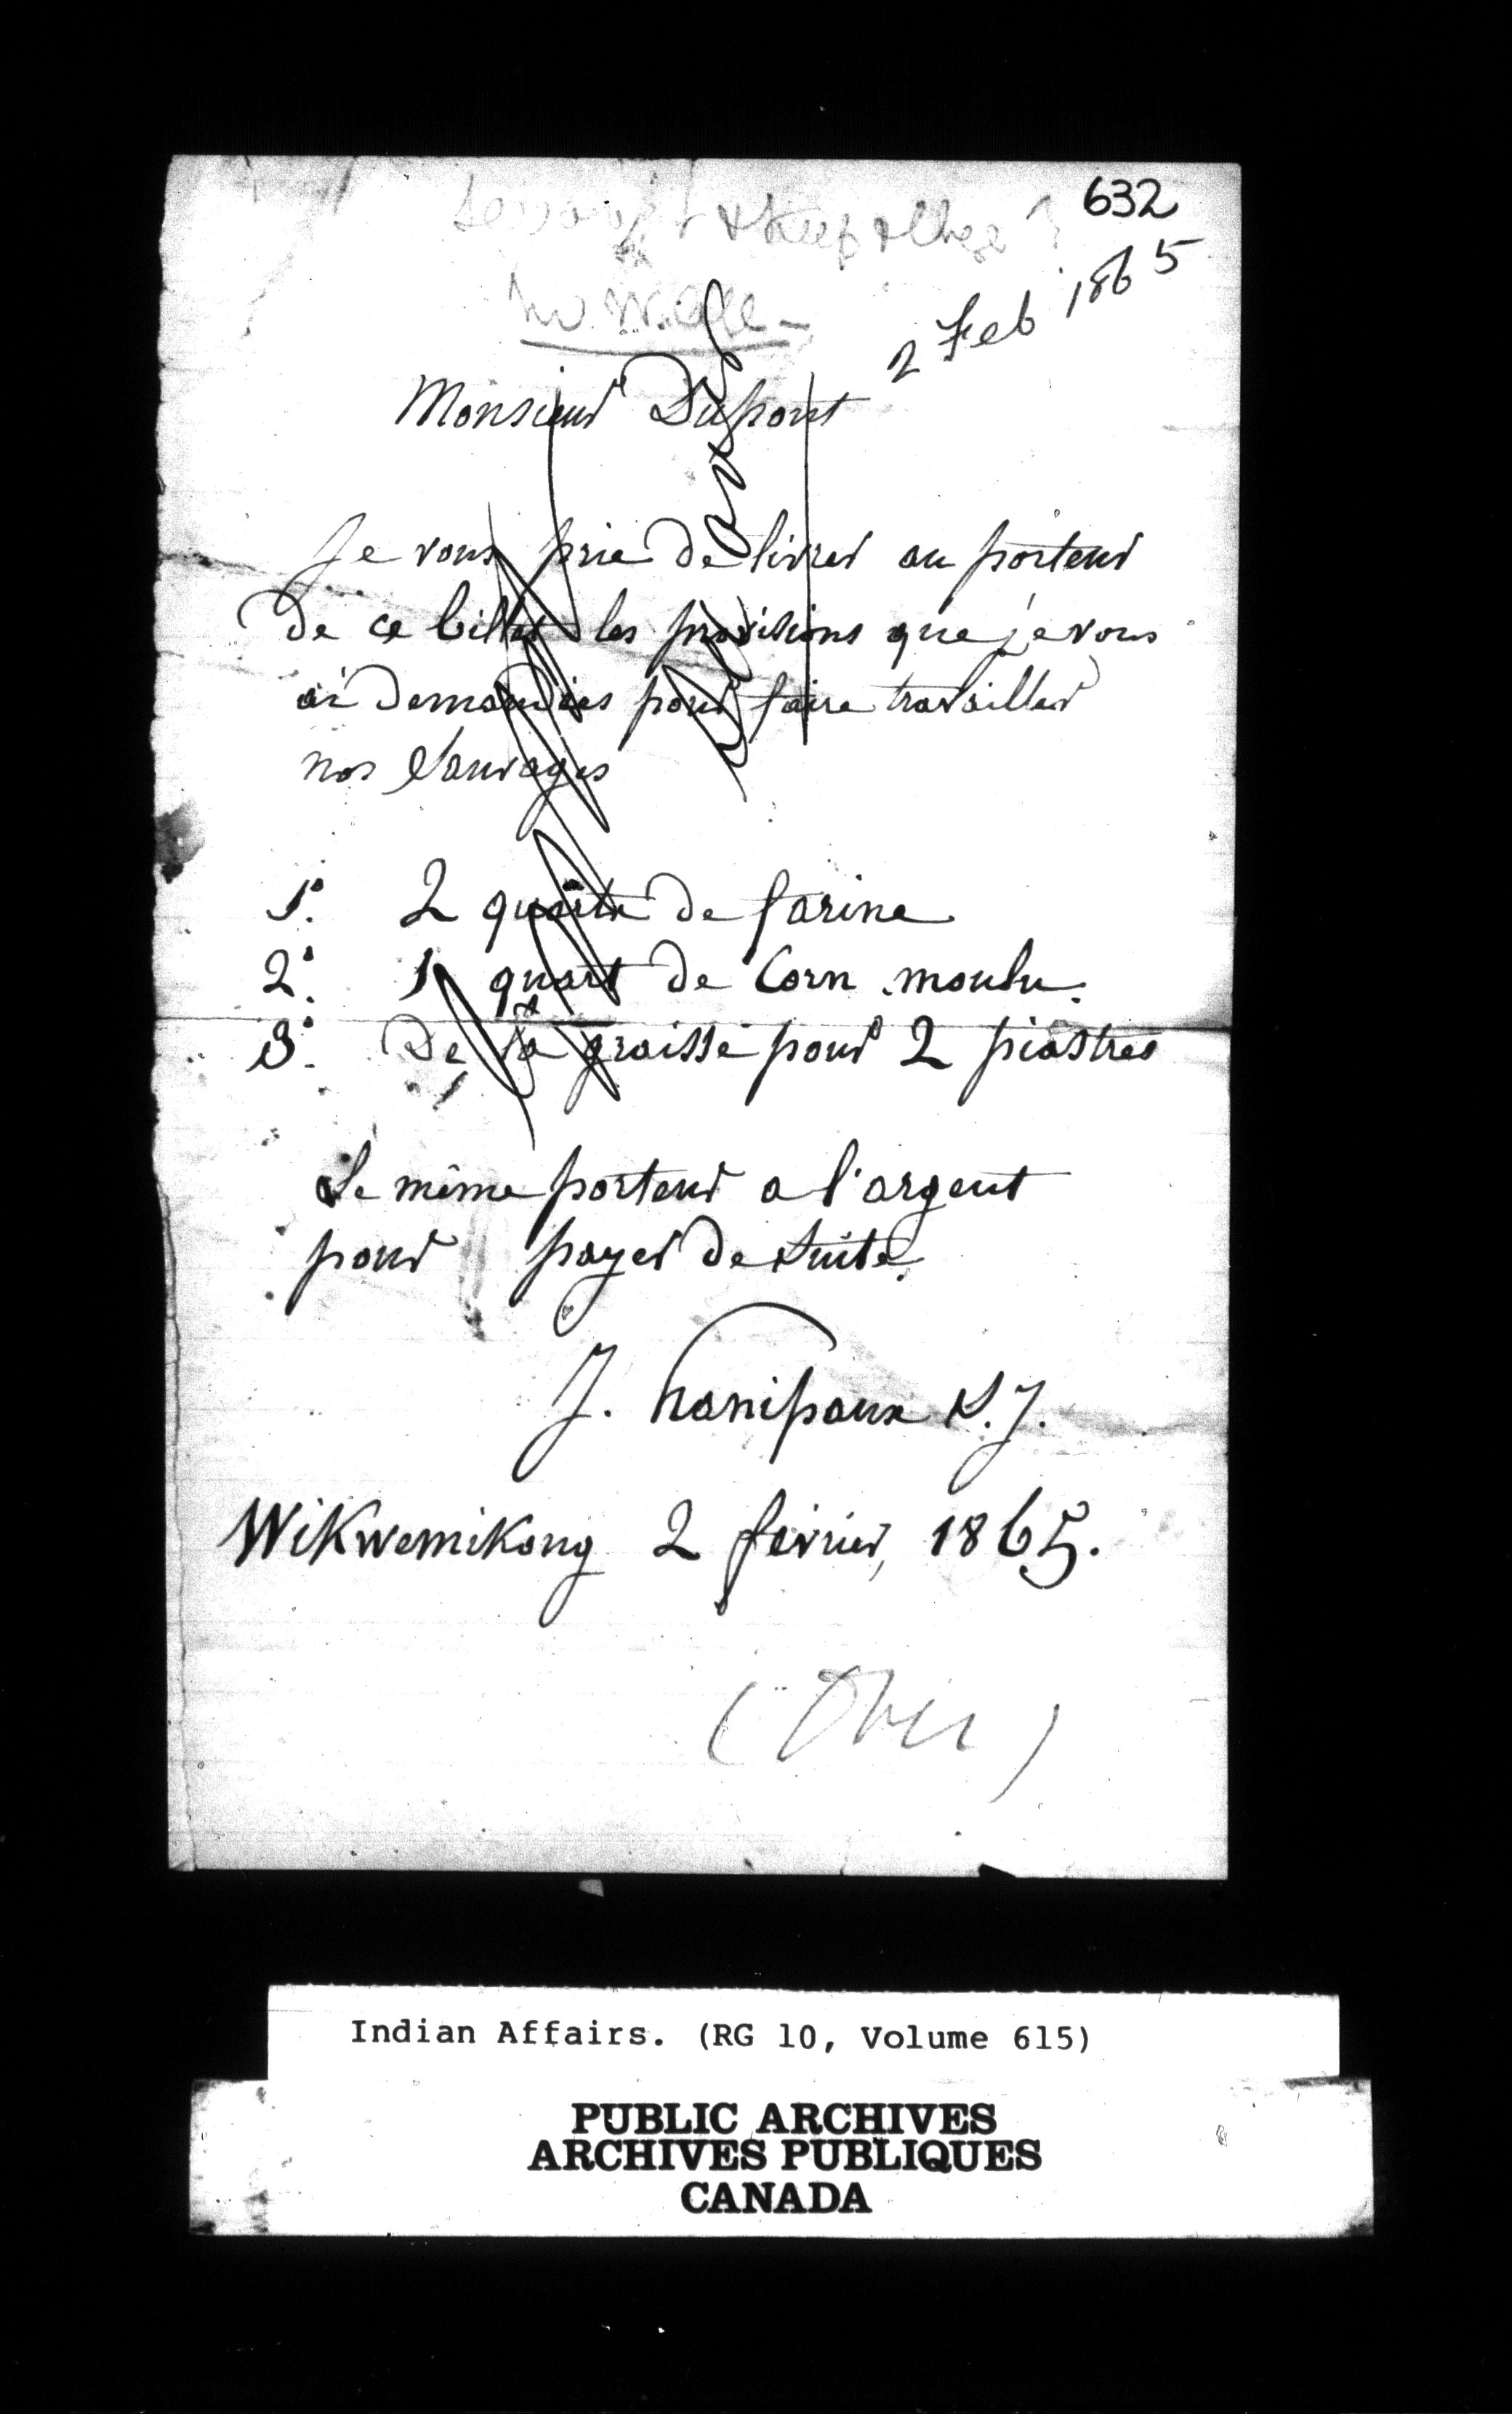 632
2 Feb 1865
Monsieur Dupont
Je vous prie de livrer au porteur
de ce billet les provisions que je vous
ai demandées pour faire travailler
nos Sauvages
1º. 2 quarts de farine
2º. 1 quart de Corn moulu.
3º. De la graisse pour 2 piastres
Le même porteur a l'argent
pour payer de suite.
J. hanipaux S.J.
WiKwemiKong 2 février, 1865.
(Over)
Indian Affairs. (RG 10, Volume 615)
PUBLIC ARCHIVES
ARCHIVES PUBLIQUES
CANADA